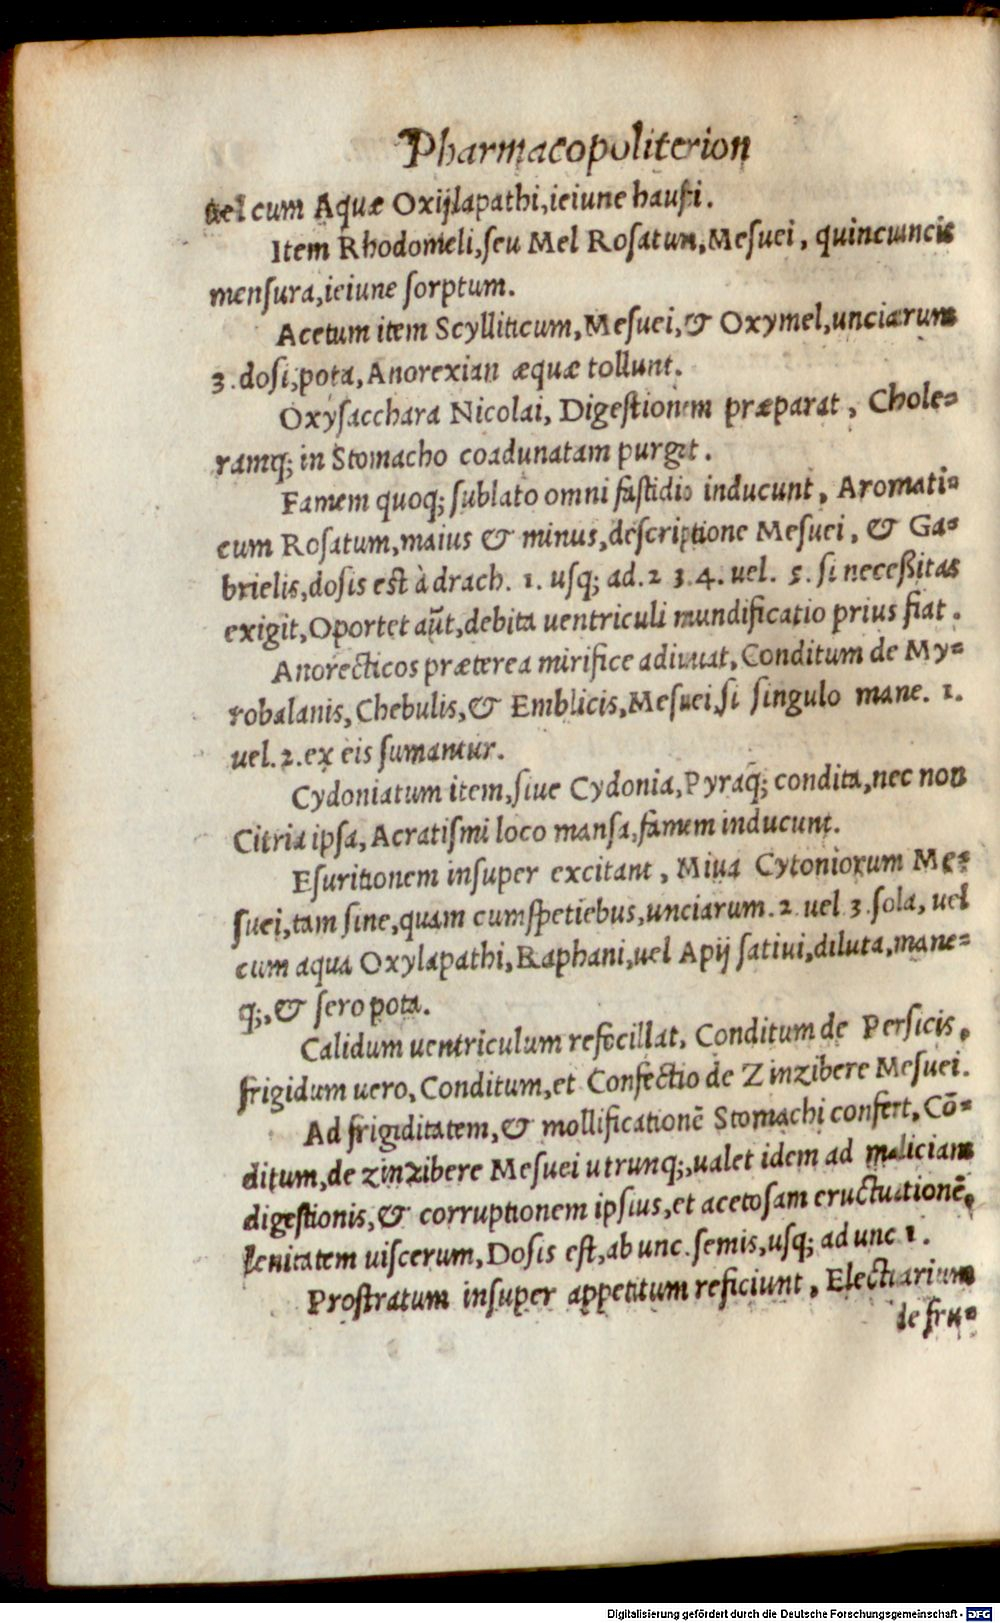 Pharmacopoliterion
uel cum Aquæ Oxijlapathi, ieiune hausti.
Item Rhodomeli, seu Mel Rosatum, Mesuei, quincuncis
mensura, ieiune sorptum.
Acetum item Scylliticum, Mesuei, & Oxymel, unciarum
3. dosi, pota, Anorexian æquæ tollunt.
Oxysacchara Nicolai, Digestionem præparat, Chole-
ramq; in Stomacho coadunatam purgat.
Famem quoq; sublato omni fastidio inducunt, Aromati-
cum Rosatum, maius & minus, descriptione Mesuei, & Ga-
brielis, dosis est à drach. 1. usq; ad. 2 3. 4. uel. 5. si neceßitas
exigit, Oportet aũt, debita uentriculi mundificatio prius fiat.
Anorecticos præterea mirifice adiuuat, Conditum de My-
robalanis, Chebulis, & Emblicis, Mesuei, si singulo mane. 1.
uel. 2. ex eis sumantur.
Cydoniatum item, siue Cydonia, Pyraq̃; condita, nec non
Citria ipsa, Acratismi loco mansa, famem inducunt.
Esuritionem insuper excitant, Miua Cytoniorum Me-
suei, tam sine, quam cum spetiebus, unciarum. 2. uel 3. sola, uel
cum aqua Oxylapathi, Raphani, uel Apij satiui, diluta, mane-
q;, & sero pota.
Calidum uentriculum refocillat, Conditum de Persicis,
frigidum uero, Conditum, et Confectio de Zinzibere Mesuei.
Ad frigiditatem, & mollificationẽ Stomachi confert, Cõ-
ditum, de zinzibere Mesuei utrunq;, ualet idem ad maliciam
digestionis, & corruptionem ipsius, et acetosam eructuationẽ,
lenitatem uiscerum, Dosis est, ab unc. semis, usq; ad unc 1.
Prostratum insuper appetitum reficiunt, Electuarium
de fru-
Digitalisierung gefördert durch die Deutsche Forschungsgemeinschaft - DFG